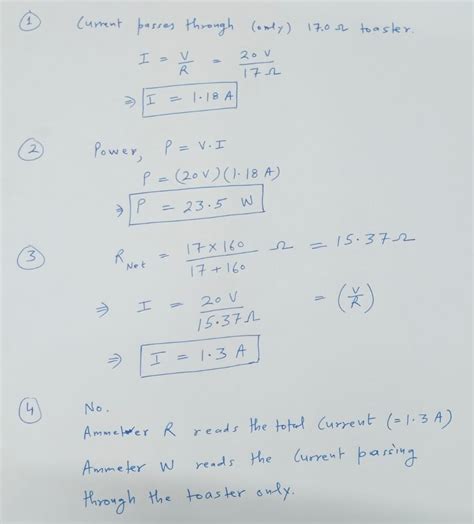 ① Current passes through (only) 17.0 Ω toaster.
I = V/R = 20 V/17 Ω
⇒ I = 1.18 A
② Power, P = V.I
P = (20V)(1.18 A)
⇒ P = 23.5 W
③ R Net = 17 × 160/17 + 160 Ω = 15.37 Ω
⇒ I = 20 V/15.37 Ω = (V/R)
⇒ I = 1.3 A
④ No.
Ammeter R reads the total current (= 1.3 A)
Ammeter W reads the current passing
through the toaster only.